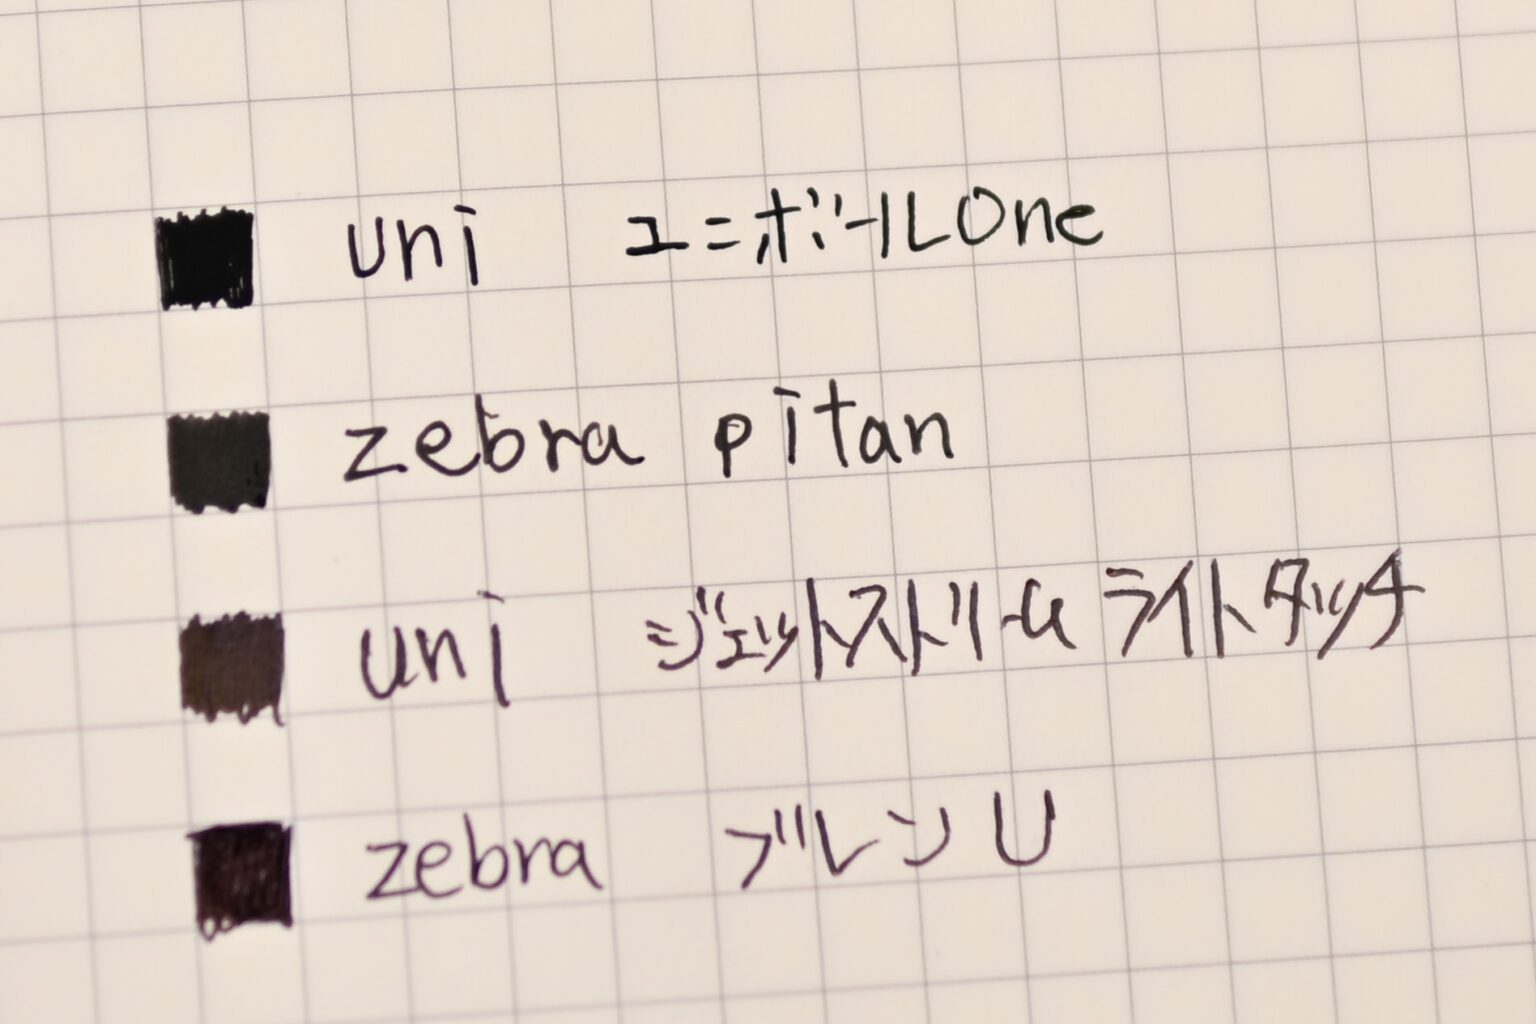 uni ユニボールOne
zebra pitan
uni ジェットストリーム ライトタッチ
zebra ブレンU